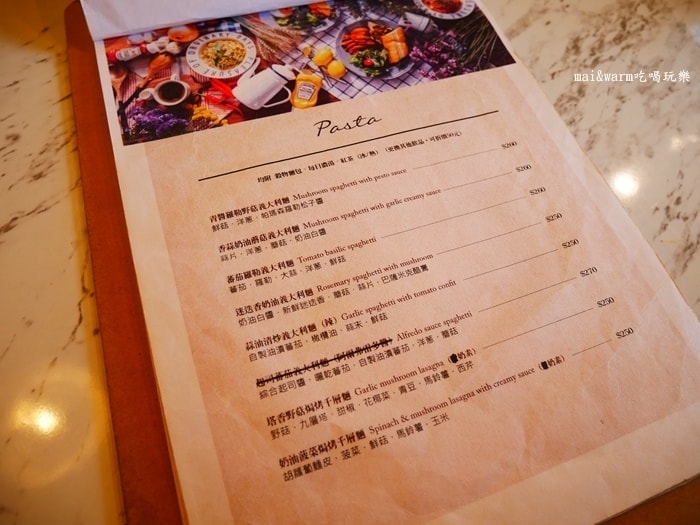 mai&warm吃喝玩樂
Pasta
均附 穀物麵包．每日濃湯．紅茶（冰/熱）（更換其他飲品，可折價50元）
青醬羅勒野菇義大利麵 Mushroom spaghetti with pesto sauce $260
鮮菇．洋蔥．帕瑪森羅勒松子醬
香蒜奶油蘑菇義大利麵 Mushroom spaghetti with garlic creamy sauce $260
蒜片．洋蔥．蘑菇．奶油白醬
蕃茄羅勒義大利麵 Tomato basilic spaghetti $260
蕃茄．羅勒．大蒜．洋蔥．鮮菇
迷迭香奶油義大利麵 Rosemary spaghetti with mushroom $250
奶油白醬．新鮮迷迭香．蘑菇．蒜片．巴薩米克醋膏
蒜油清炒義大利麵（辣） Garlic spaghetti with tomato confit $250
自製油漬蕃茄．橄欖油．蒜末．鮮菇
起司蕃茄義大利麵 Alfredo sauce spaghetti $270
綜合起司醬．曬乾蕃茄．自製油漬蕃茄．洋蔥．蘑菇
塔香野菇焗烤千層麵 Garlic mushroom lasagna（奶素） $250
野菇．九層塔．甜椒．花椰菜．青豆．馬鈴薯．西芹
奶油菠菜焗烤千層麵 Spinach & mushroom lasagna with creamy sauce（奶素） $250
胡蘿蔔麵皮．菠菜．鮮菇．馬鈴薯．玉米